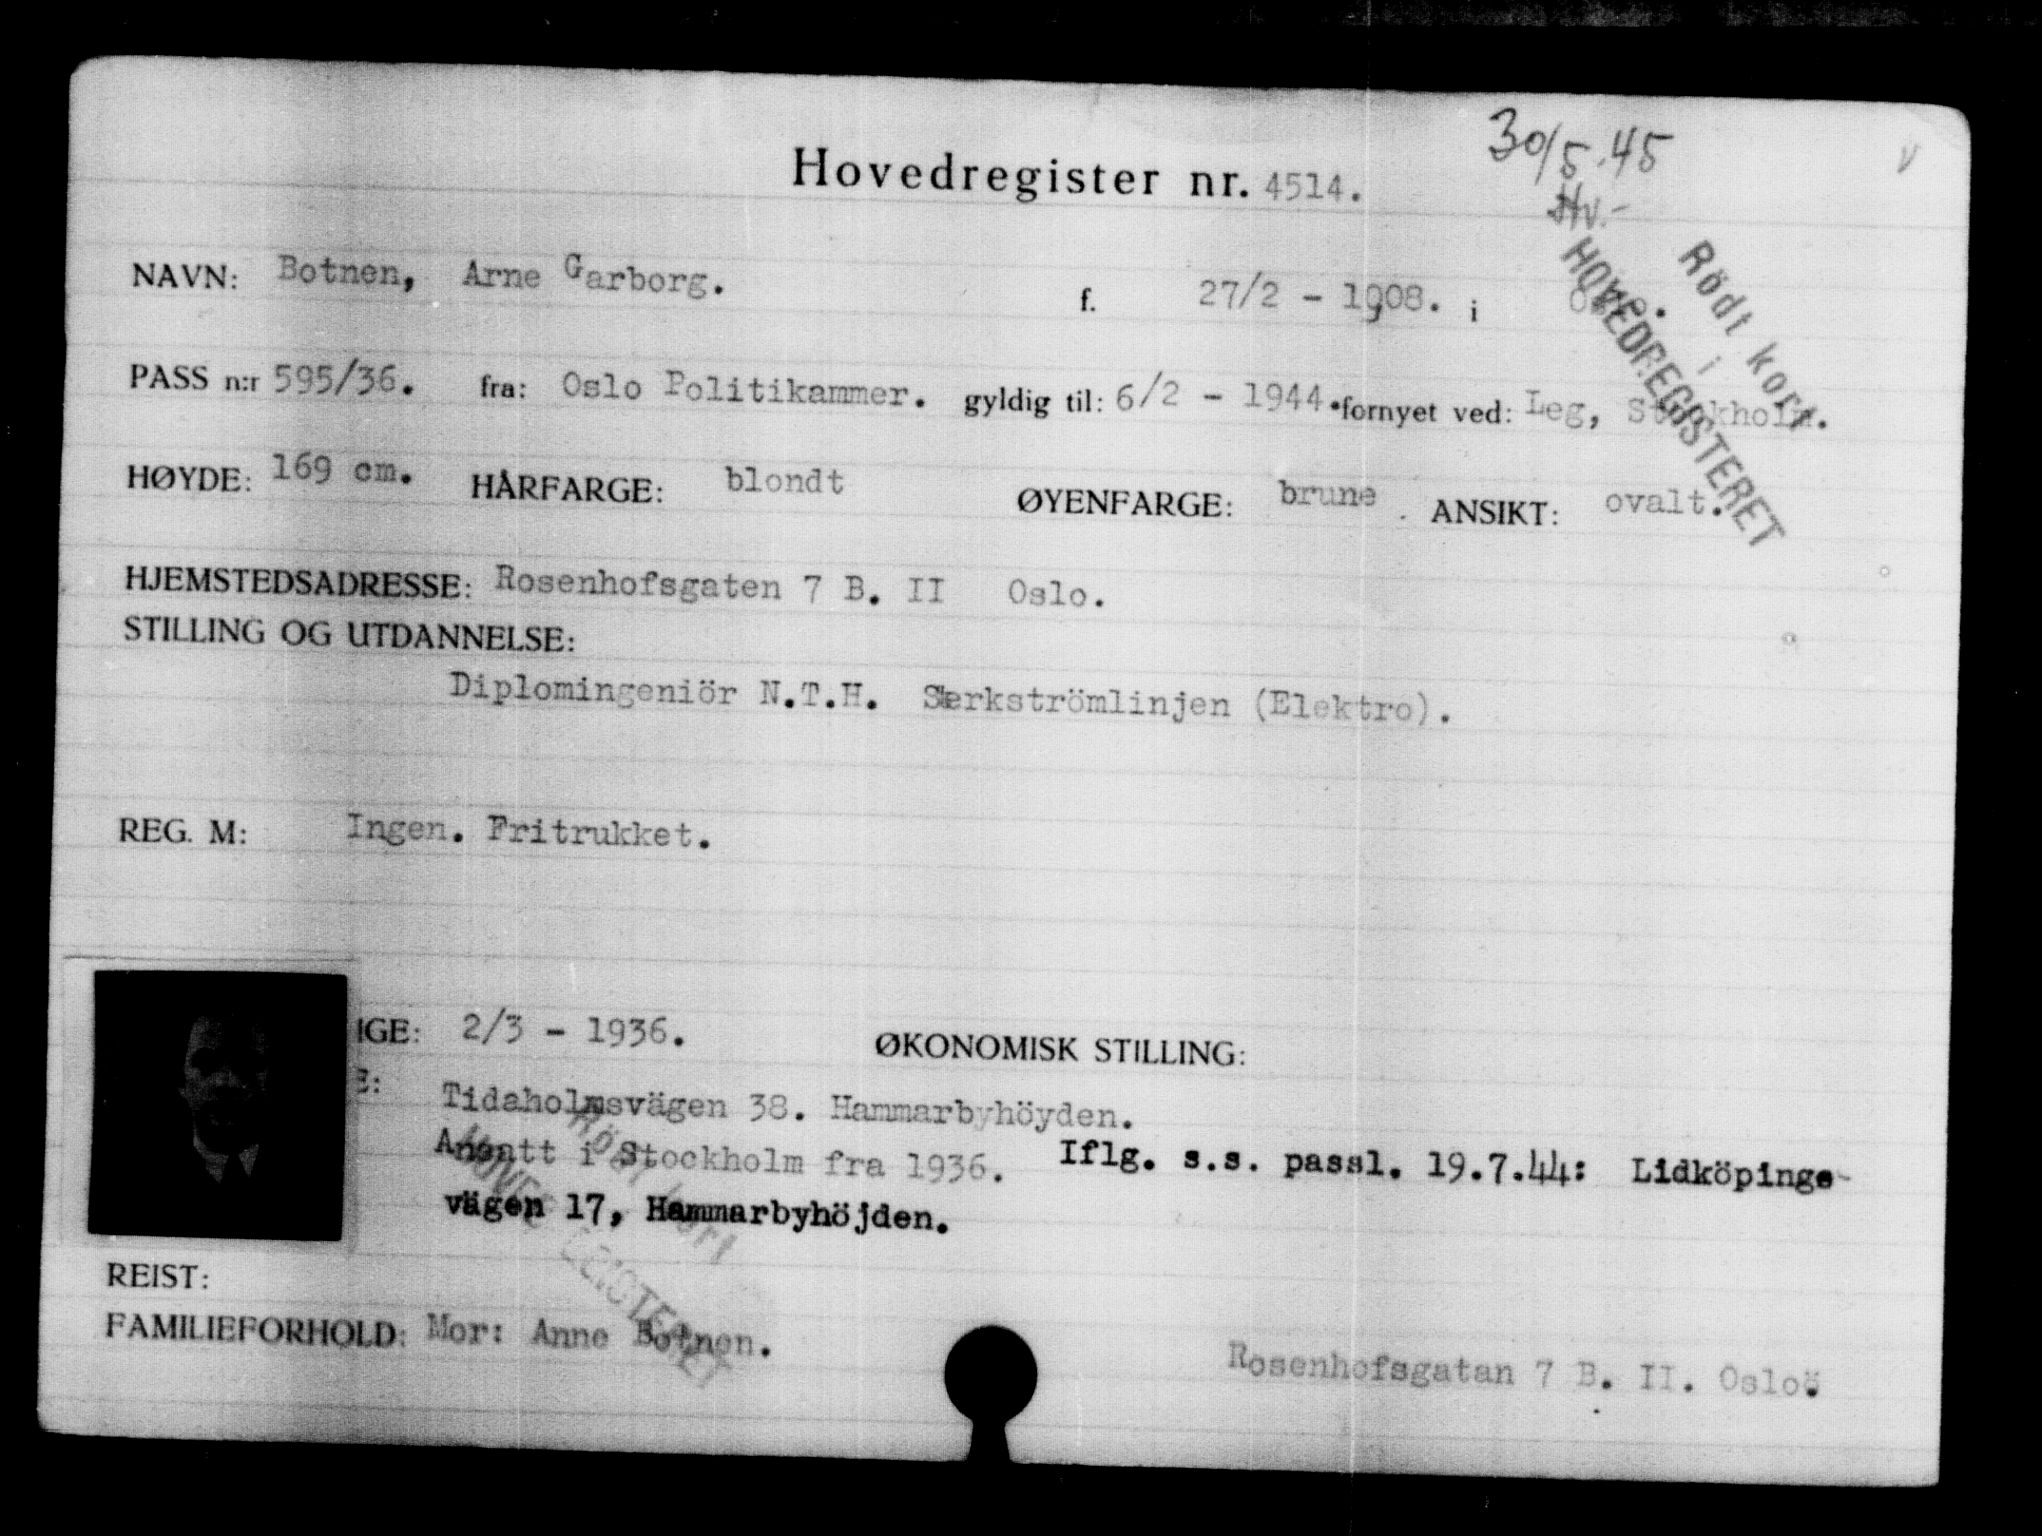 30/5.45
Hovedregister nr. 4514.
Hv.-
Rödt kort
i
HOVEDREGISTERET
NAVN: Botnen, Arne Garborg. f. 27/2 - 1908. i
PASS n:r 595/36. fra: Oslo Politikammer. gyldig til: 6/2 - 1944. fornyet ved: Leg, Stockholm.
HØYDE: 169 cm. HÅRFARGE: blondt ØYENFARGE: brune . ANSIKT: ovalt.
HJEMSTEDSADRESSE: Rosenhofsgaten 7 B. II Oslo.
STILLING OG UTDANNELSE:
Diplomingeniör N.T.H. Særkströmlinjen (Elektro).
REG. M: Ingen. Fritrukket.
IGE: 2/3 - 1936. ØKONOMISK STILLING:
E: Tidaholmsvägen 38. Hammarbyhöyden.
Ansatt i Stockholm fra 1936. Iflg. s.s. passl. 19.7.44: Lidköpings-
vägen 17, Hammarbyhöjden.
Rödt kort
HOVEDREGISTERET
REIST:
FAMILIEFORHOLD: Mor: Anne Botnen.
Rosenhofsgatan 7 B. II. Oslo.